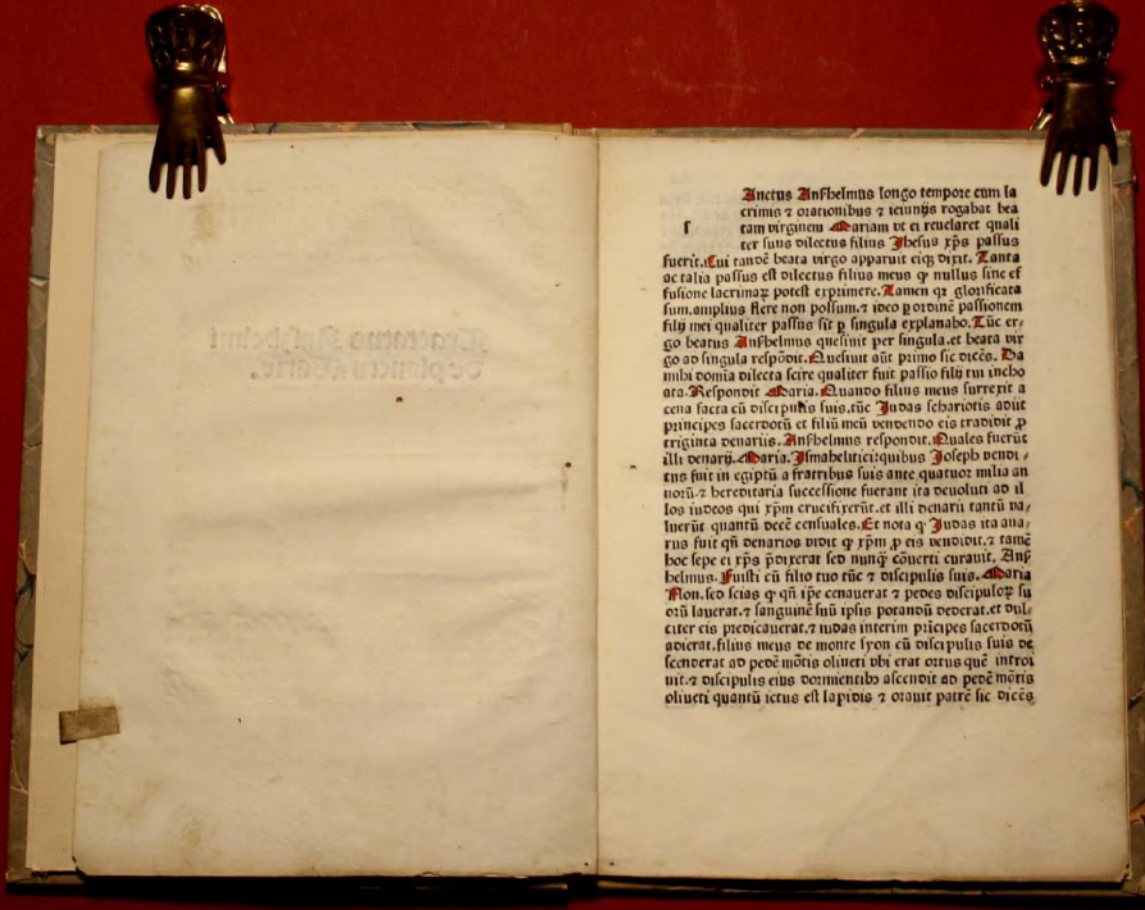 Tractatus Anshelmi
de planctu Marie.
Anctus Anſhelmus longo tempore cum la
crimis ⁊ orationibus ⁊ ieiunijs rogabat bea
ſ tam virginem Mariam vt ei reuelaret quali
ter ſuus dilectus filius Jheſus xp̄s paſſus
fuerit. Cui tandē beata virgo apparuit eiqꝫ dixit. Tanta
ac talia paſſus eſt dilectus filius meus ꝙ nullus ſine ef
fuſione lacrimaꝝ poteſt exprimere. Tamen qꝛ glorificata
ſum. amplius flere non poſſum. ⁊ ideo ꝑ ordinē paſſionem
filij mei qualiter paſſus ſit ꝑ ſingula explanabo. Tūc er⸗
go beatus Anſhelmus queſiuit per ſingula. et beata vir
go ad ſingula reſpōdit. Queſiuit aūt primo ſic dicēs. Da
mihi domīa dilecta ſcire qualiter fuit paſſio filij tui incho
ata. Reſpondit Maria. Quando filius meus ſurrexit a
cena facta cū diſcipulis ſuis. tūc Judas ſchariotis adiit
principes ſacerdotū et filiū meū vendendo eis tradidit ꝓ
triginta denariis. Anſhelmus reſpondit. Quales fuerūt
illi denarij. Maria. Jſmahelitici: quibus Joſeph vendi ⸗
tus fuit in egiptū a fratribus ſuis ante quatuor milia an
norū. ⁊ hereditaria ſucceſſione fuerant ita deuoluti ad il
los iudeos qui xp̄m crucifixerūt. et illi denarii tantū va⸗
luerūt quantū decē cenſuales. Et nota ꝙ Judas ita aua⸗
rus fuit qn̄ denarios vidit ꝙ xp̄m ꝓ eis vendidit. ⁊ tamē
hoc ſepe ei xp̄s p̄dixerat ſed nunꝙ̄ cōuerti curauit. Anſ
helmus. Fuiſti cū filio tuo tūc ⁊ diſcipulis ſuis. Maria
Non. ſed ſcias ꝙ qn̄ ip̄e cenauerat ⁊ pedes diſcipuloꝝ ſu
orū lauerat. ⁊ ſanguinē ſuū ipſis potandū dederat. et dul⸗
citer eis predicauerat. ⁊ iudas interim prīcipes ſacerdotū
adierat. filius meus de monte ſyon cū diſcipulis ſuis de
ſcenderat ad pedē mōtis oliueti vbi erat ortus quē introi
uit. ⁊ diſcipulis eius dormientibꝫ aſcendit ad pedē mōtis
oliueti quantū ictus eſt lapidis ⁊ orauit patrē ſic dicēs